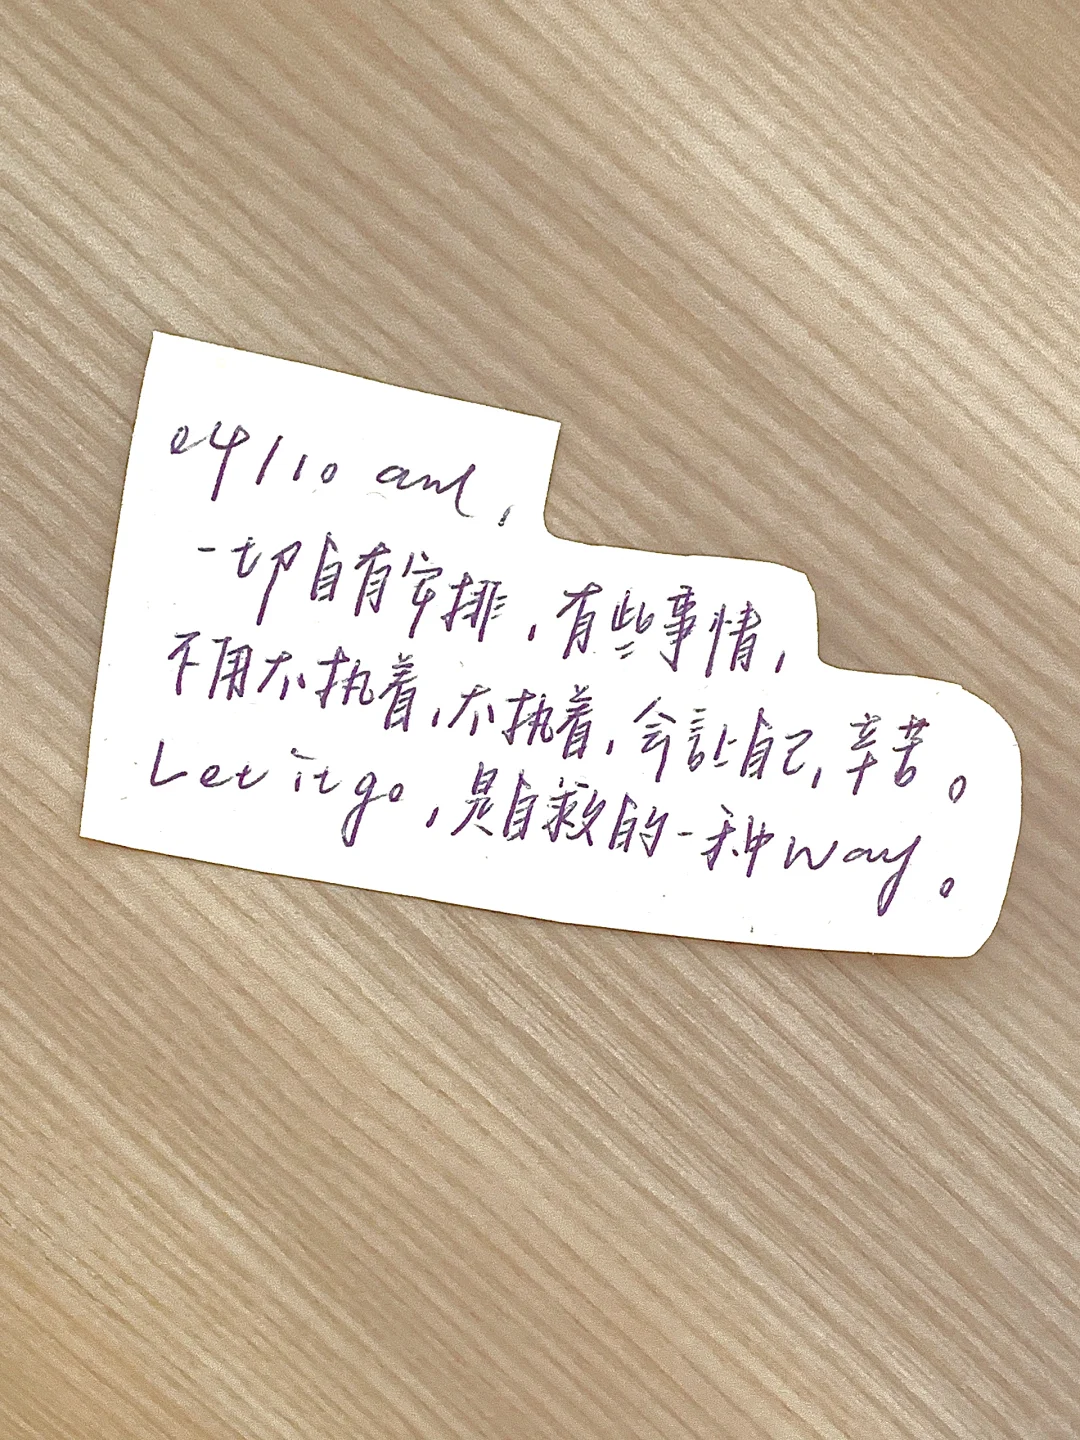 24/10 and,
一切自有安排,有些事情,
不用太执着,太执着,会讓自己,辛苦。
Let it go,是自救自的一种way。